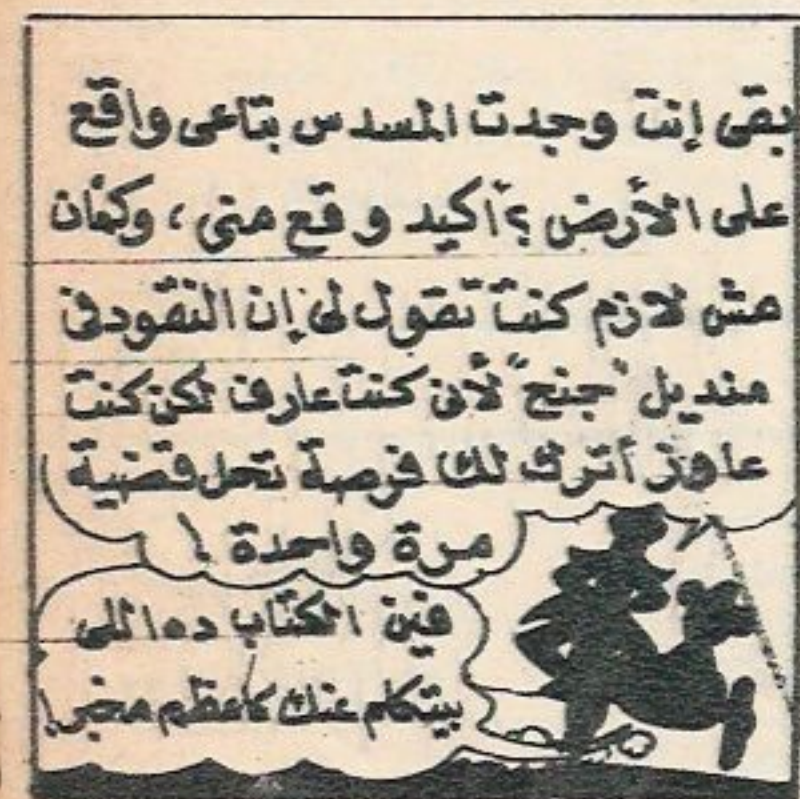 بقى إنت وجدت المسدس بتاعى واقع
على الأرض ؟ أكيد وقع منى ، وكمان
مش لازم كنت تقول لى إن النقود فى
منديل "جنح" لأنى كنت عارف لكن كنت
عاوز أترك لك فرصة تحل قضية
مرة واحدة !
فين الكتاب ده اللى
بيتكلم عنك كأعظم مخبر !